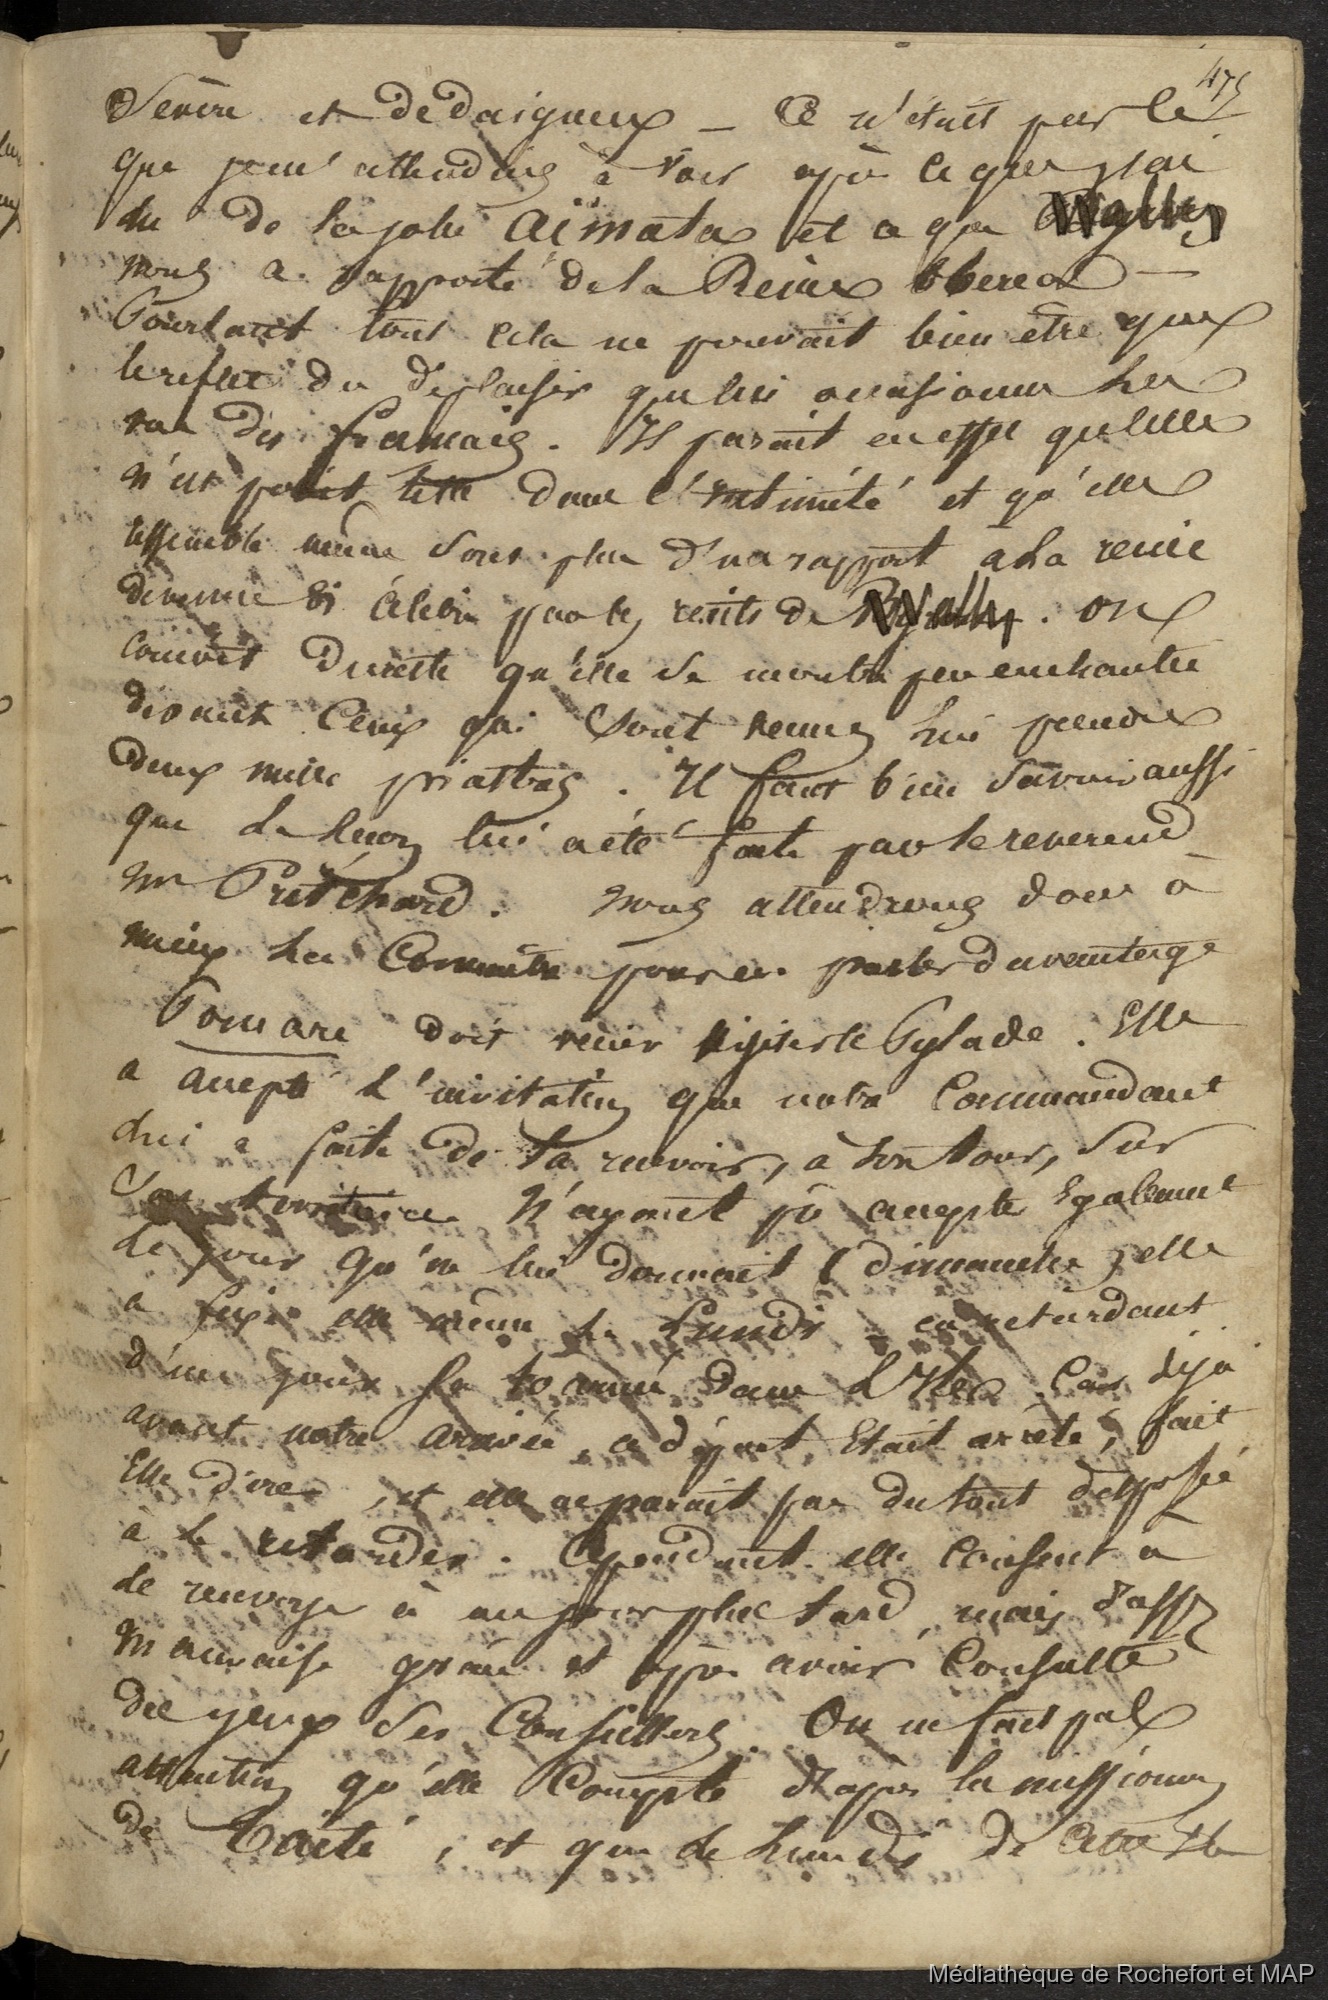 475
Sévère et dedaigneux _ Ce n'était pas le
que je m'attendais à voir après ce que j'ai
lu de la jolie Aïmata et ce que Wally
nous a rapporté de la Reine Oberea —
Pourtant tout cela ne pouvait bien être que
le reflet du déplaisir que lui occasionna la
vue des français. Il parait en effet qu'elle
n'est point telle dans l'intimité et qu'elle
ressemble même sous plus d'un rapport à la reine
devenue si célèbre par les récits de Wally. on
conçoit du reste qu'elle se montre peu enchantée
devant ceux qui sont venus lui prendre
deux mille piastres. Il faut bien savoir aussi
que la leçon lui a été faite par le reverend
Mr Pritchard. nous attendrons donc à
mieux la Connaître pour en parler davantage
Pomaré doit venir visiter le Pylade. Elle
a accepté l'invitation que notre Commandant
lui a faite de la recevoir, à son tour, sur
son territoire N'ayant pû accepter également
le jour qu'on lui donnait (dimanche) elle
a fixé elle même le Lundi _ en retardant
d'un jour sa tournée dans l'Ile. Car déjà
avant notre arrivée, ce départ, était arrêté, fait
Elle dire, et elle ne parait pas du tout disposée
à le retarder. Cependant elle consent à
le renvoyer à un jour plus tard, mais d'assez
mauvaise grâce et après avoir Consulté
des yeux ses Conseillers. On ne fait pas
attention qu'elle Compte d'après les missionn
de Taïti, et que le lundi de cette Ile
Médiathèque de Rochefort et MAP